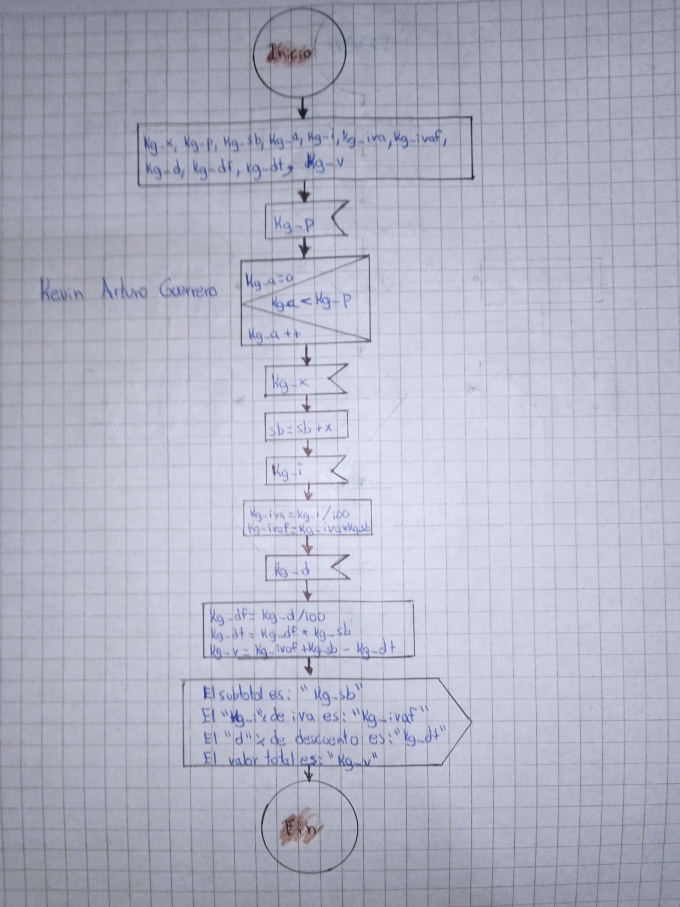 Inicio
Kg-x, Kg-p, Kg-sb, Kg-a, Kg-i, Kg-iva, Kg-ivaf,
Kg-d, Kg-df, Kg-dt, Kg-v
Kg-p
Kevin Arturo Guerrero
Kg-a=0
Kg-a < Kg-p
Kg-a ++
Kg-x
sb=sb+x
Kg-i
Kg-iva=Kg-i/100
Kg-ivaf=Kg-iva*Kg-sb
Kg-d
Kg-df= Kg-d/100
Kg-dt= Kg-df * Kg-sb
Kg-v= Kg-ivaf+Kg-sb - Kg-dt
El subtotal es: "Kg-sb"
El "Kg-i"% de iva es: "Kg-ivaf"
El "d"% de descuento es: "Kg-dt"
El valor total es: "Kg-v"
Fin